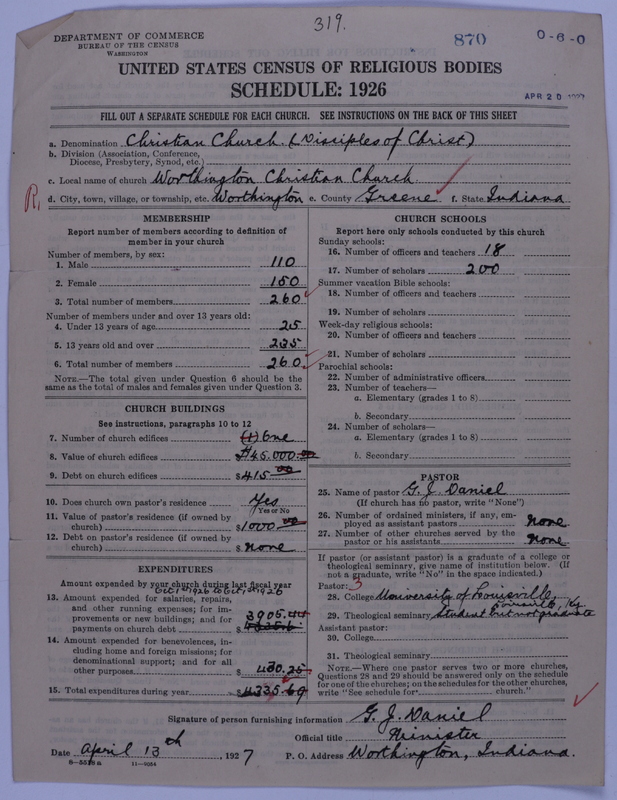 319.
870
0-6-0
DEPARTMENT OF COMMERCE
BUREAU OF THE CENSUS
WASHINGTON
UNITED STATES CENSUS OF RELIGIOUS BODIES
SCHEDULE: 1926
APR 20 1927
FILL OUT A SEPARATE SCHEDULE FOR EACH CHURCH. SEE INSTRUCTIONS ON THE BACK OF THIS SHEET
a. Denomination Christian Church (Disciples of Christ)
b. Division (Association, Conference,
Diocese, Presbytery, Synod, etc.)
c. Local name of church Worthington Christian Church
R. d. City, town, village, or township, etc. Worthington e. County Greene f. State Indiana
MEMBERSHIP
Report number of members according to definition of
member in your church
Number of members, by sex:
1. Male 110
2. Female 150
3. Total number of members 260
Number of members under and over 13 years old:
4. Under 13 years of age 25
5. 13 years old and over 235
6. Total number of members 260
NOTE.—The total given under Question 6 should be the
same as the total of males and females given under Question 3.
CHURCH BUILDINGS
See instructions, paragraphs 10 to 12
7. Number of church edifices (1) One
8. Value of church edifices $45.000.00
9. Debt on church edifices $415.00
10. Does church own pastor's residence Yes
Yes or No
11. Value of pastor's residence (if owned by
church) $1000.00
12. Debt on pastor's residence (if owned by
church) $ None
EXPENDITURES
Amount expended by your church during last fiscal year
Oct 1st 1926 to Oct 1st 1926
13. Amount expended for salaries, repairs,
and other running expenses; for im-
provements or new buildings; and for
payments on church debt 3905.44
14. Amount expended for benevolences, in-
cluding home and foreign missions; for
denominational support; and for all
other purposes $430.25
15. Total expenditures during year $4335.69
CHURCH SCHOOLS
Report here only schools conducted by this church
Sunday schools:
16. Number of officers and teachers 18
17. Number of scholars 200
Summer vacation Bible schools:
18. Number of officers and teachers
19. Number of scholars
Week-day religious schools:
20. Number of officers and teachers
21. Number of scholars
Parochial schools:
22. Number of administrative officers
23. Number of teachers—
a. Elementary (grades 1 to 8)
b. Secondary
24. Number of scholars—
a. Elementary (grades 1 to 8)
b. Secondary
PASTOR
25. Name of pastor G. J. Daniel
(If church has no pastor, write "None")
26. Number of ordained ministers, if any, em-
ployed as assistant pastors None
27. Number of other churches served by the
pastor or his assistants None
If pastor (or assistant pastor) is a graduate of a college or
theological seminary, give name of institution below. (If
not a graduate, write "No" in the space indicated.)
Pastor: 3
28. College University of Louisville,
Louisville, Ky.
29. Theological seminary Student but not graduate
Assistant pastor:
30. College
31. Theological seminary
NOTE.—Where one pastor serves two or more churches,
Questions 28 and 29 should be answered only on the schedule
for one of the churches; on the schedules for the other churches,
write "See schedule for church."
Signature of person furnishing information G. J. Daniel
Official title Minister
Date April 13th, 1927 P. O. Address Worthington, Indiana.
8-5518a 11-9054